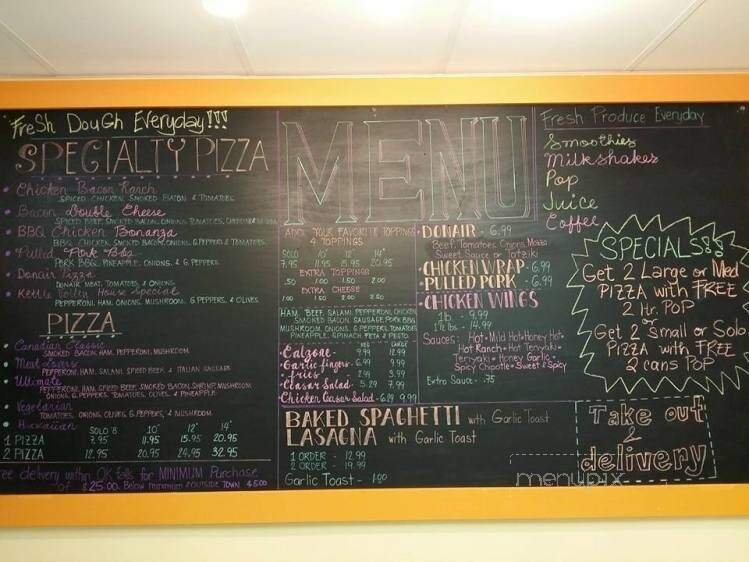 Fresh Dough Everyday!!!
SPECIALTY PIZZA
Chicken Bacon Ranch
SPICED CHICKEN, SMOKED BACON & TOMATOES
Bacon Double Cheese
SPICED BEEF, SMOKED BACON, ONIONS, TOMATOES,
BBQ Chicken Bonanza
BBQ CHICKEN, SMOKED BACON, ONIONS, G.PEPPERS & TOMATOES
Pulled Pork BBQ
PORK BBQ, PINEAPPLE, ONIONS, & G. PEPPERS
Donair Pizza
DONAIR MEAT, TOMATOES, & ONIONS
Kettle Valley House Special
PEPPERONI, HAM, ONIONS, MUSHROOM, G.PEPPERS, & OLIVES
PIZZA
Canadian Classic
SMOKED BACON, HAM, PEPPERONI, MUSHROOM
Meat Lovers
PEPPERONI, HAM, SALAMI, SPICED BEEF & ITALIAN SAUSAGE
Ultimate
PEPPERONI, HAM, SPICED BEEF, SMOKED BACON, SHRIMP, MUSHROOM,
ONIONS, G.PEPPERS, TOMATOES, OLIVES, & PINEAPPLE
Vegetarian
TOMATOES, ONIONS, OLIVES, G.PEPPERS, & MUSHROOM
Hawaiian
SOLO 8" 10" 12" 14"
1 PIZZA 7.95 11.95 15.95 20.95
2 PIZZA 12.95 20.95 24.95 32.95
Free delivery within OK falls for MINIMUM Purchase
of $25.00. Below minimum & OUTSIDE TOWN $5.00
MENU
ADD YOUR FAVORITE TOPPINGS
4 TOPPINGS
SOLO 10" 12" 14"
7.95 11.95 15.95 20.95
EXTRA TOPPINGS
.50 1.00 1.50 2.00
EXTRA CHEESE
1.00 1.50 2.00 2.50
HAM, BEEF, SALAMI, PEPPERONI, CHICKEN
SMOKED BACON, SAUSAGE, PORK BBQ
MUSHROOM, ONIONS, G.PEPPERS, TOMATOES
PINEAPPLE, SPINACH, FETA & PESTO
REG LARGE
Calzone - 9.99 12.99
Garlic fingers - 6.99 9.99
fries - 2.99 3.99
Ceasar Salad - 5.29 7.99
Chicken Ceasar Salad - 6.29 9.99
DONAIR - 6.99
Beef, Tomatoes, Onions, Mozza
Sweet Sauce or Tzatziki
CHICKEN WRAP - 6.99
PULLED PORK - 6.99
CHICKEN WINGS
1 lb. - 9.99
1½ lbs - 14.99
Sauces: Hot • Mild Hot • Honey Hot •
Hot Ranch • Hot Teriyaki •
Teriyaki • Honey Garlic •
Spicy Chipotle • Sweet & Spicy
Extra Sauce - .75
BAKED SPAGHETTI with Garlic Toast
LASAGNA with Garlic Toast
1 ORDER - 12.99
2 ORDER - 19.99
Garlic Toast - 1.00
Fresh Produce Everyday
Smoothies
Milkshakes
Pop
Juice
Coffee
SPECIALS!!
Get 2 Large or Med
PIZZA with FREE
2 ltr. POP
Get 2 Small or Solo
PIZZA with FREE
2 cans POP
Take out
2
delivery
menupix